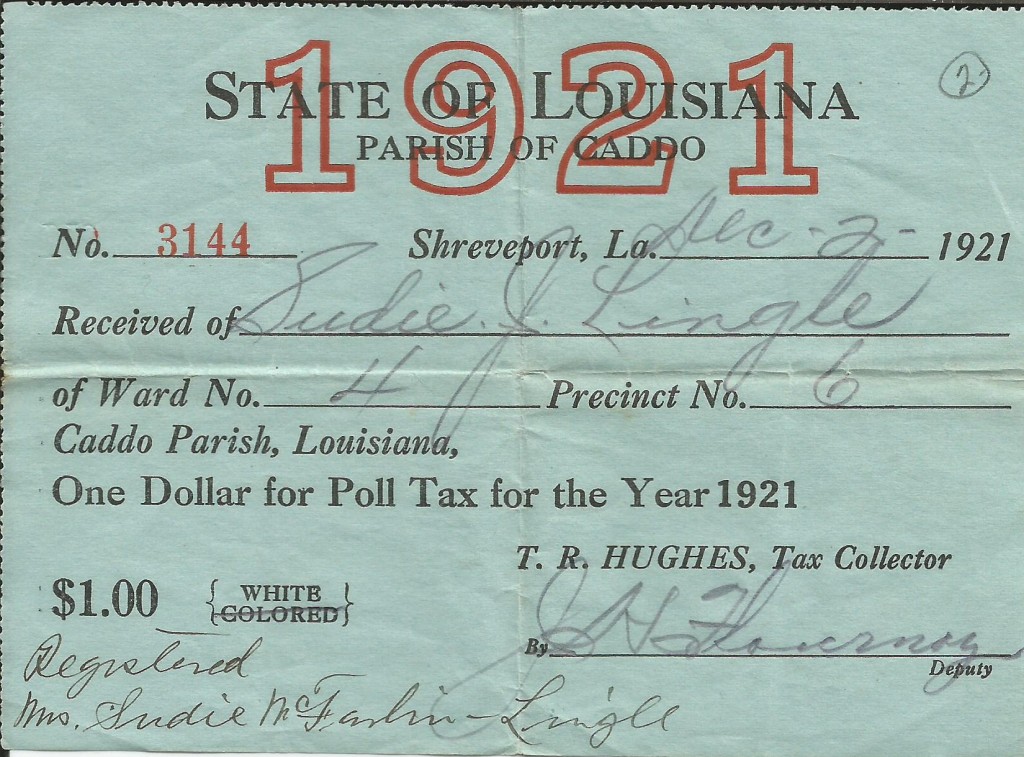 1921
STATE OF LOUISIANA
PARISH OF CADDO
2
No. 3144 Shreveport, La. Dec - 2 - 1921
Received of Sudie. J. Lingle
of Ward No. 4 Precinct No. 6
Caddo Parish, Louisiana,
One Dollar for Poll Tax for the Year 1921
T. R. HUGHES, Tax Collector
$1.00 { WHITE
COLORED }
By J H Flournoy
Deputy
Registered
Mrs. Sudie McFarlin - Lingle